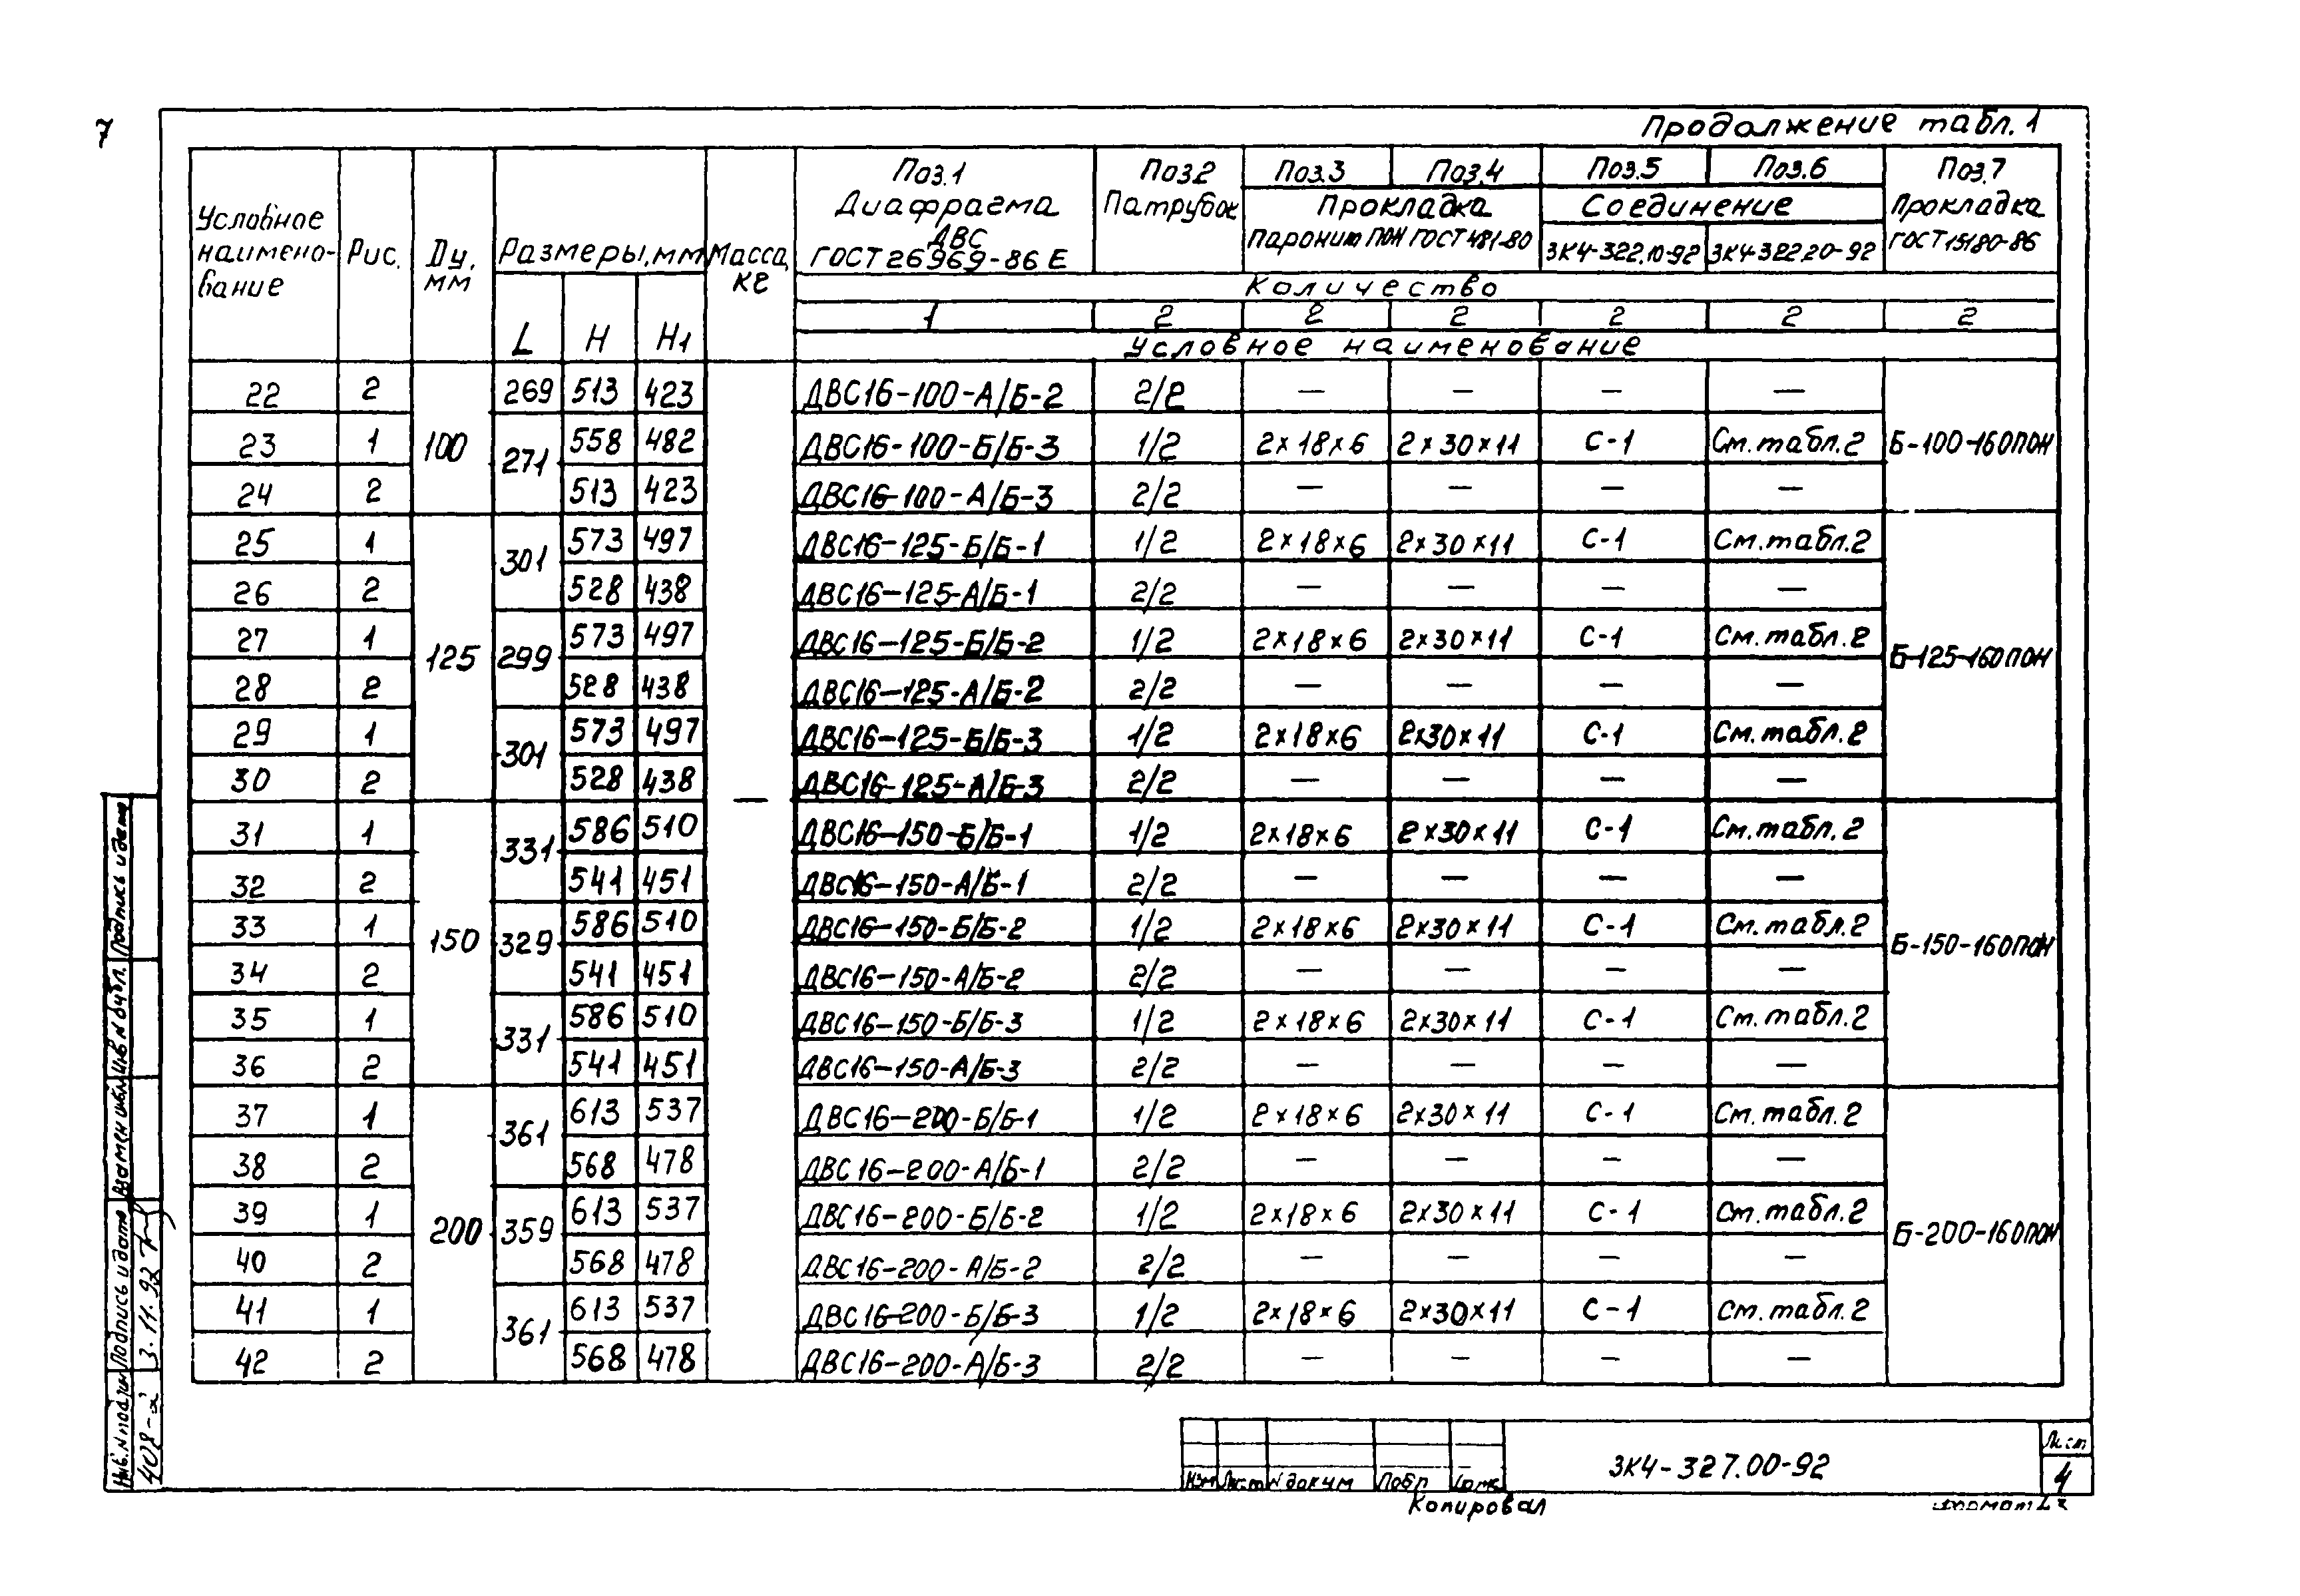 7
Продолжение табл. 1
Условное наимено- вание | Рис. | Dу, мм | Размеры, мм | Масса, кг | Поз.1 Диафрагма ДВС ГОСТ 26969-86 Е | Поз.2 Патрубок | Поз.3 | Поз.4 | Поз.5 | Поз.6 | Поз.7 Прокладка ГОСТ 15180-86
Прокладка | Соединение
Паронит ПОН ГОСТ 481-80 | ЗК4-322.10-92 | ЗК4-322.20-92
Количество
L | H | H1 | 1 | 2 | 2 | 2 | 2 | 2 | 2
Условное наименование
22 | 2 | 100 | 269 | 513 | 423 | ДВС16-100-А/Б-2 | 2/2 | — | — | — | — | Б-100-160ПОН
23 | 1 | 271 | 558 | 482 | ДВС16-100-Б/Б-3 | 1/2 | 2×18×6 | 2×30×11 | С-1 | См. табл. 2
24 | 2 | 513 | 423 | ДВС16-100-А/Б-3 | 2/2 | — | — | — | —
25 | 1 | 125 | 301 | 573 | 497 | — | ДВС16-125-Б/Б-1 | 1/2 | 2×18×6 | 2×30×11 | С-1 | См. табл. 2 | Б-125-160ПОН
26 | 2 | 528 | 438 | ДВС16-125-А/Б-1 | 2/2 | — | — | — | —
27 | 1 | 299 | 573 | 497 | ДВС16-125-Б/Б-2 | 1/2 | 2×18×6 | 2×30×11 | С-1 | См. табл. 2
28 | 2 | 528 | 438 | ДВС16-125-А/Б-2 | 2/2 | — | — | — | —
29 | 1 | 301 | 573 | 497 | ДВС16-125-Б/Б-3 | 1/2 | 2×18×6 | 2×30×11 | С-1 | См. табл. 2
30 | 2 | 528 | 438 | ДВС16-125-А/Б-3 | 2/2 | — | — | — | —
31 | 1 | 150 | 331 | 586 | 510 | ДВС16-150-Б/Б-1 | 1/2 | 2×18×6 | 2×30×11 | С-1 | См. табл. 2 | Б-150-160ПОН
32 | 2 | 541 | 451 | ДВС16-150-А/Б-1 | 2/2 | — | — | — | —
33 | 1 | 329 | 586 | 510 | ДВС16-150-Б/Б-2 | 1/2 | 2×18×6 | 2×30×11 | С-1 | См. табл. 2
34 | 2 | 541 | 451 | ДВС16-150-А/Б-2 | 2/2 | — | — | — | —
35 | 1 | 331 | 586 | 510 | ДВС16-150-Б/Б-3 | 1/2 | 2×18×6 | 2×30×11 | С-1 | См. табл. 2
36 | 2 | 541 | 451 | ДВС16-150-А/Б-3 | 2/2 | — | — | — | —
37 | 1 | 200 | 361 | 613 | 537 | ДВС16-200-Б/Б-1 | 1/2 | 2×18×6 | 2×30×11 | С-1 | См. табл. 2 | Б-200-160ПОН
38 | 2 | 568 | 478 | ДВС16-200-А/Б-1 | 2/2 | — | — | — | —
39 | 1 | 359 | 613 | 537 | ДВС16-200-Б/Б-2 | 1/2 | 2×18×6 | 2×30×11 | С-1 | См. табл. 2
40 | 2 | 568 | 478 | ДВС16-200-А/Б-2 | 2/2 | — | — | — | —
41 | 1 | 361 | 613 | 537 | ДВС16-200-Б/Б-3 | 1/2 | 2×18×6 | 2×30×11 | С-1 | См. табл. 2
42 | 2 | 568 | 478 | ДВС16-200-А/Б-3 | 2/2 | — | — | — | —
Подпись и дата
Инв. N дубл.
Взамен инв.
Подпись и дата
3.11.92
Инв. N подл.
408-2
Изм Лист N докум
ЗК4-327.00-92
Лист
4
Копировал
Формат